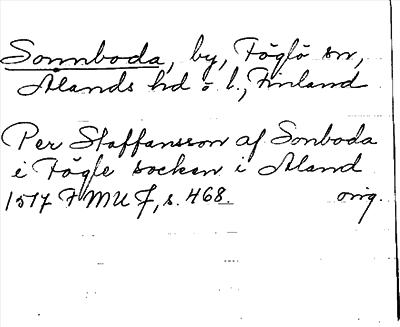 Sonnboda, by, Föglö sn,
Ålands hd o l., Finland
Per Staffansson af Sonboda
i Fögle socken i Aland
1517 FMU 7, s. 468. orig.